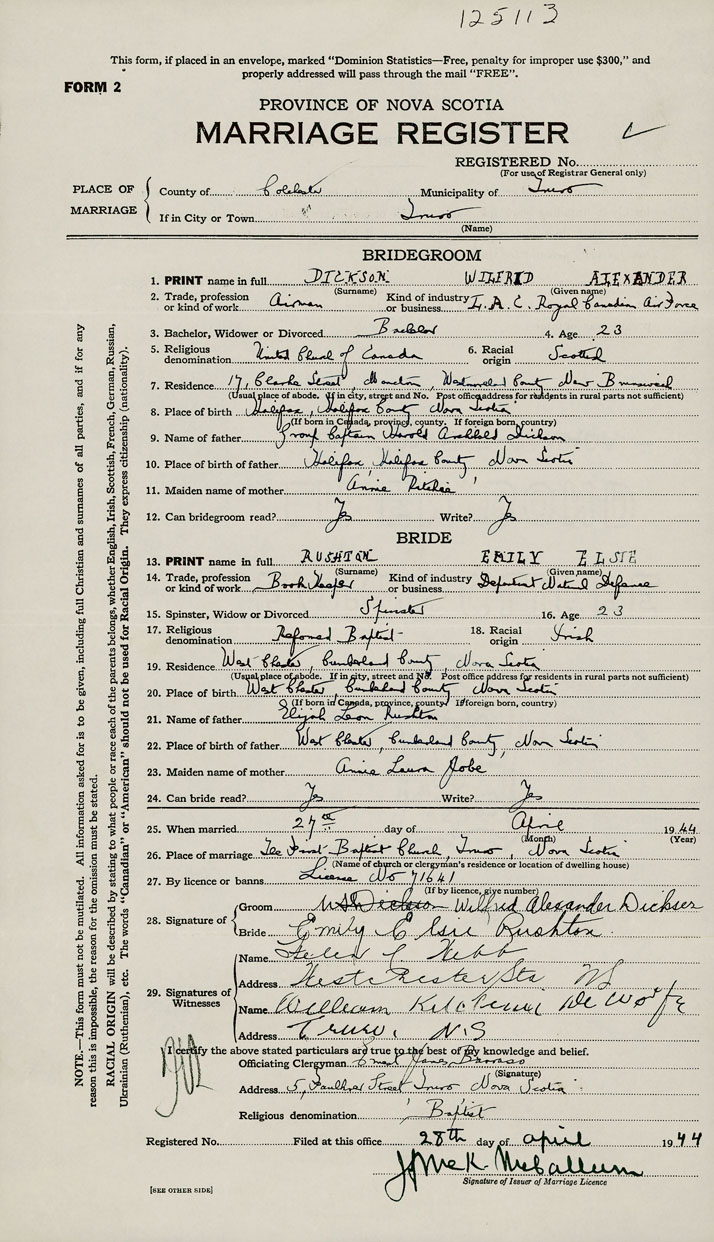 125113
This form, if placed in an envelope, marked "Dominion Statistics—Free, penalty for improper use $300," and
properly addressed will pass through the mail "FREE".
FORM 2
PROVINCE OF NOVA SCOTIA
MARRIAGE REGISTER
REGISTERED No.
(For use of Registrar General only)
PLACE OF MARRIAGE
County of Colchester Municipality of Truro
If in City or Town Truro
(Name)
BRIDEGROOM
1. PRINT name in full DICKSON WILFRID ALEXANDER
(Surname) (Given name)
2. Trade, profession or kind of work Airman Kind of industry or business L.A.C. Royal Canadian Air Force
3. Bachelor, Widower or Divorced Bachelor 4. Age 23
5. Religious denomination United Church of Canada 6. Racial origin Scottish
7. Residence 17, Clarke Street, Moncton, Westmoreland County New Brunswick
(Usual place of abode. If in city, street and No. Post office address for residents in rural parts not sufficient)
8. Place of birth Halifax, Halifax County Nova Scotia
(If born in Canada, province, county. If foreign born, country)
9. Name of father Group Captain Harold Archibald Dickson
10. Place of birth of father Halifax, Halifax County Nova Scotia
11. Maiden name of mother Annie Ritchie
12. Can bridegroom read? Yes Write? Yes
BRIDE
13. PRINT name in full RUSHTON EMILY ELSIE
(Surname) (Given name)
14. Trade, profession or kind of work Book Keeper Kind of industry or business Department National Defence
15. Spinster, Widow or Divorced Spinster 16. Age 23
17. Religious denomination Reformed Baptist 18. Racial origin Irish
19. Residence West Chester, Cumberland County, Nova Scotia
(Usual place of abode. If in city, street and No. Post office address for residents in rural parts not sufficient)
20. Place of birth West Chester, Cumberland County Nova Scotia
(If born in Canada, province, county. If foreign born, country)
21. Name of father Elijah Leon Rushton
22. Place of birth of father West Chester, Cumberland County, Nova Scotia
23. Maiden name of mother Annie Laura Jobe
24. Can bride read? Yes Write? Yes
25. When married 27th day of April 1944
(Month) (Year)
26. Place of marriage The First Baptist Church, Truro, Nova Scotia
(Name of church or clergyman's residence or location of dwelling house)
27. By licence or banns License No 71641
(If by licence, give number)
28. Signature of
Groom Wilfrid Alexander Dickson
Bride Emily Elsie Rushton
29. Signatures of Witnesses
Name Helen C Webb
Address Westchester Sta NS
Name William Kitchener DeWolfe
Address Truro, N.S
I certify the above stated particulars are true to the best of my knowledge and belief.
Officiating Clergyman
(Signature)
Address 5, Faulkner Street Truro Nova Scotia
Religious denomination Baptist
Registered No. Filed at this office 28th day of april 1944
Signature of Issuer of Marriage Licence
[SEE OTHER SIDE]
NOTE.—This form must not be mutilated. All information asked for is to be given, including full Christian and surnames of all parties, and if for any
reason this is impossible, the reason for the omission must be stated.
RACIAL ORIGIN will be described by stating to what people or race each of the parents belongs, whether English, Irish, Scottish, French, German, Russian,
Ukrainian (Ruthenian), etc. The words "Canadian" or "American" should not be used for Racial Origin. They express citizenship (nationality).